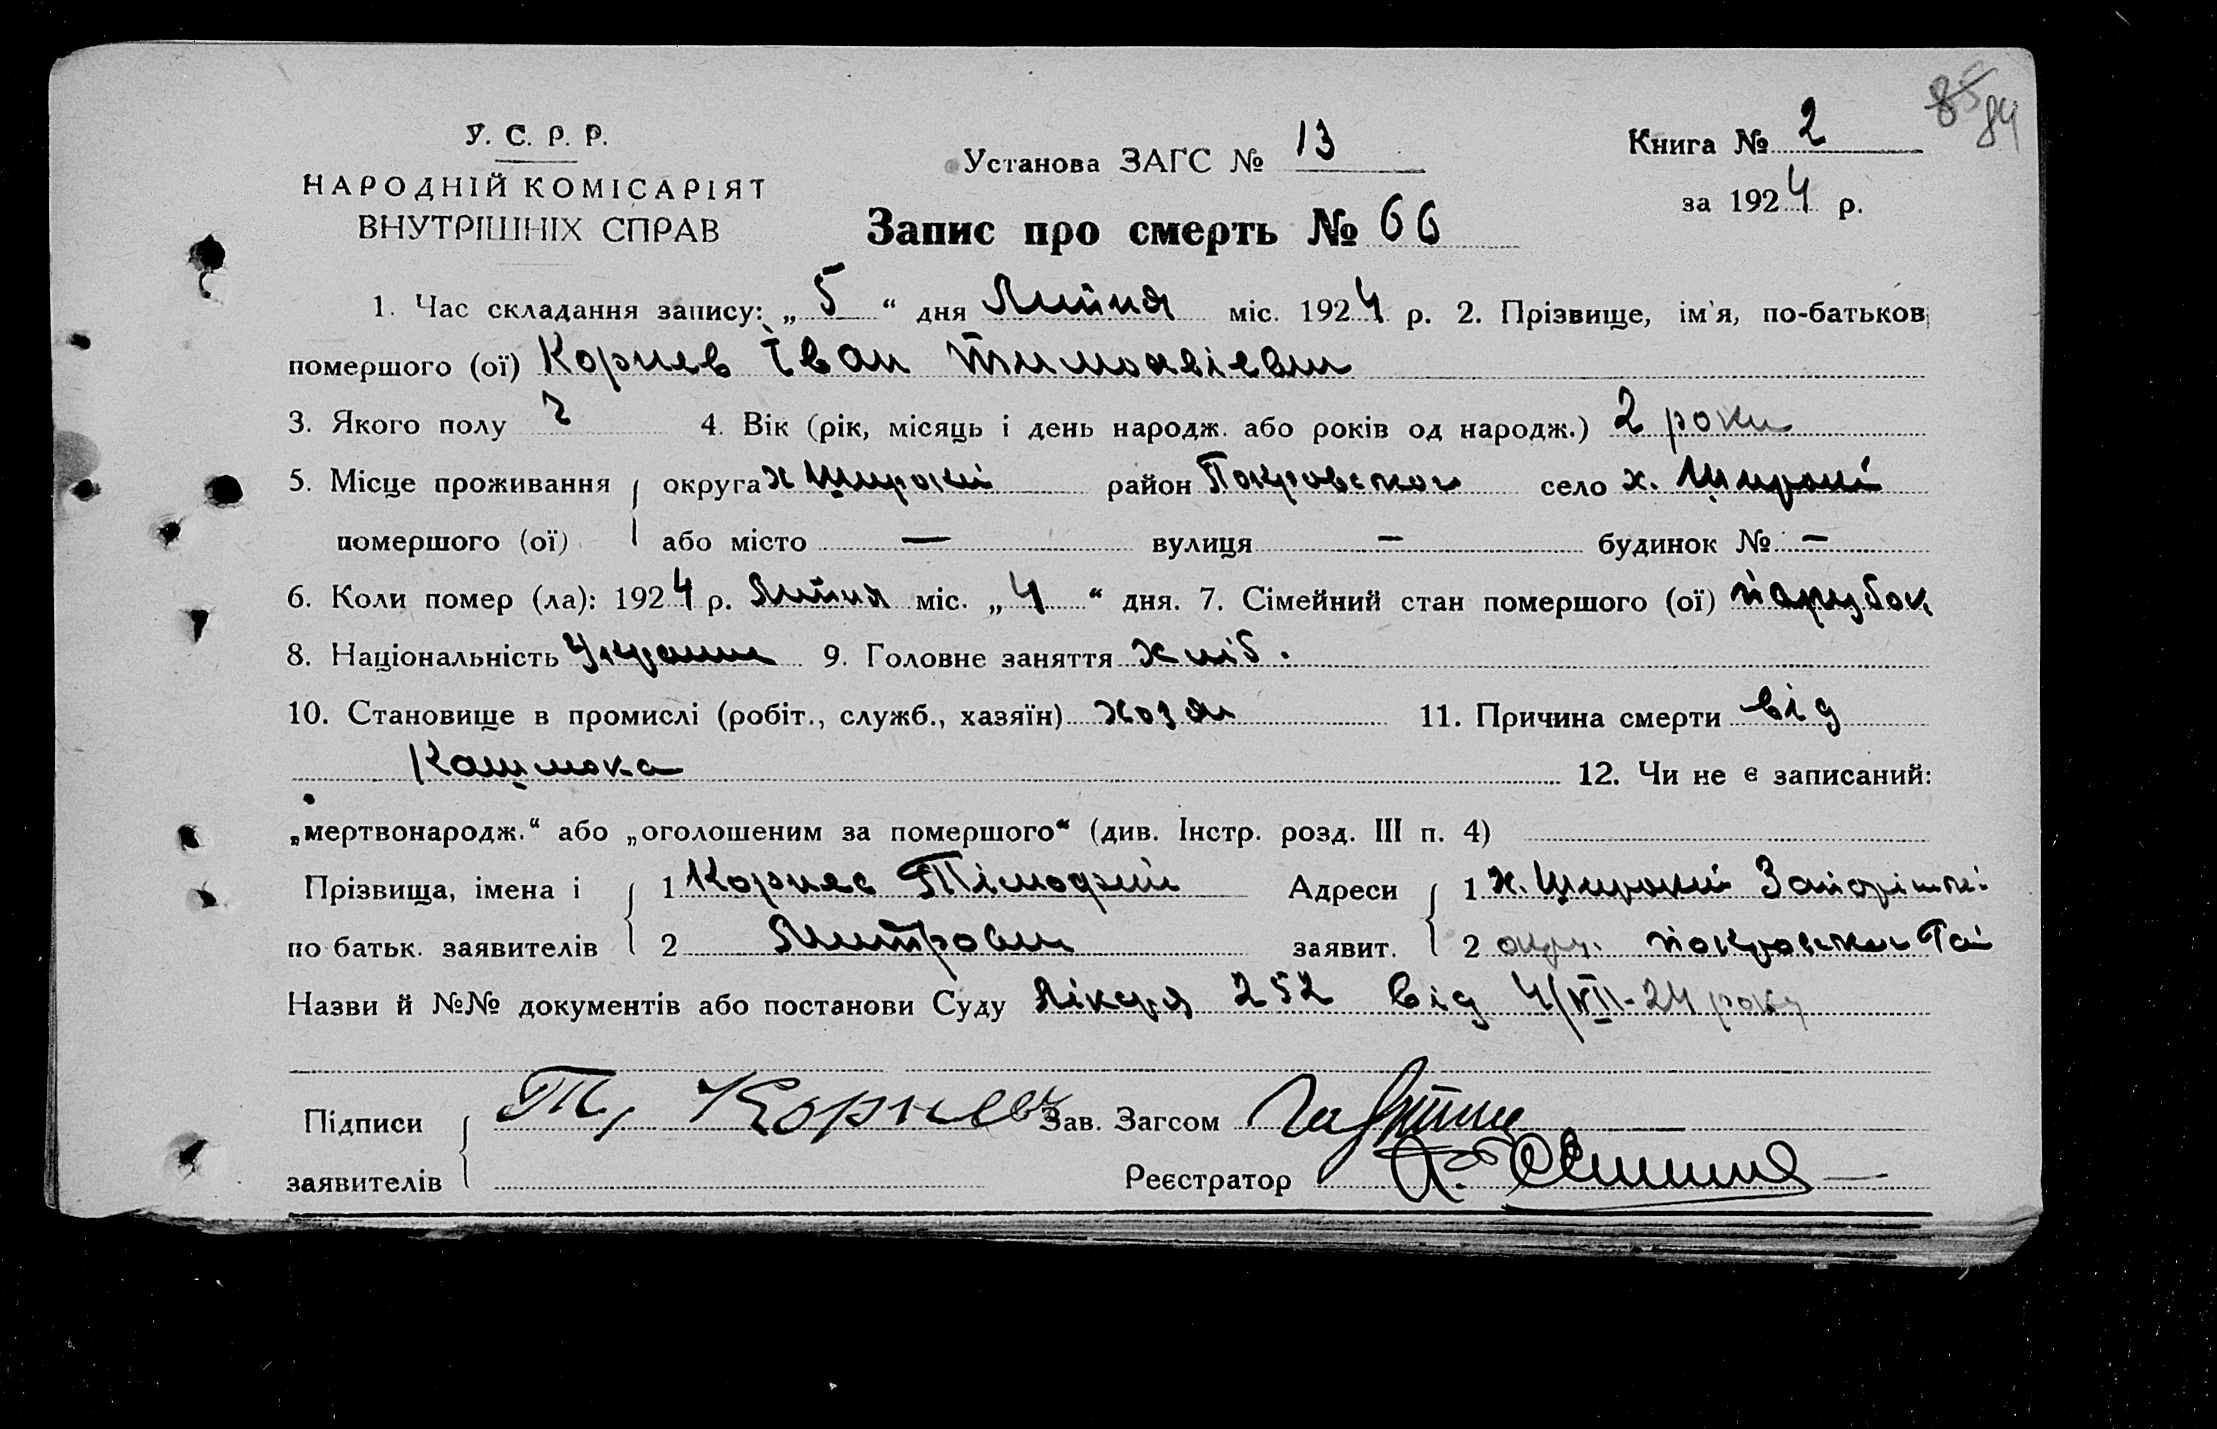 85 84
У. С. Р. Р.
НАРОДНІЙ КОМІСАРІЯТ
ВНУТРІШНІХ СПРАВ
Установа ЗАГС № 13
Книга № 2
за 1924 р.
Запис про смерть № 66
1. Час складання запису: „ 5 “ дня Липня міс. 1924 р. 2. Прізвище, ім'я, по-батьков
помершого (ої) Корнев Іван
3. Якого полу ч 4. Вік (рік, місяць і день народж. або років од народж.) 2 роки
5. Місце проживання округа х Широкий район Покровською село х. Широкий
помершого (ої) або місто — вулиця — будинок № —
6. Коли помер (ла): 1924 р. Липня міс. „ 4 “ дня. 7. Сімейний стан помершого (ої) парубок
8. Національність 9. Головне заняття хліб.
10. Становище в промислі (робіт., служб., хазяїн) хозя 11. Причина смерти від
Кашлюка 12. Чи не є записаний:
„мертвонародж.“ або „оголошеним за помершого“ (див. Інстр. розд. III п. 4)
Прізвища, імена і 1 Корнев Тімофий Адреси 1 х. Широкий
по батьк. заявителів 2 заявит. 2 окр.
Назви й №№ документів або постанови Суду Лікаря 252 від 4/VII-24 року
Підписи Т. Корнев Зав. Загсом
заявителів Реєстратор